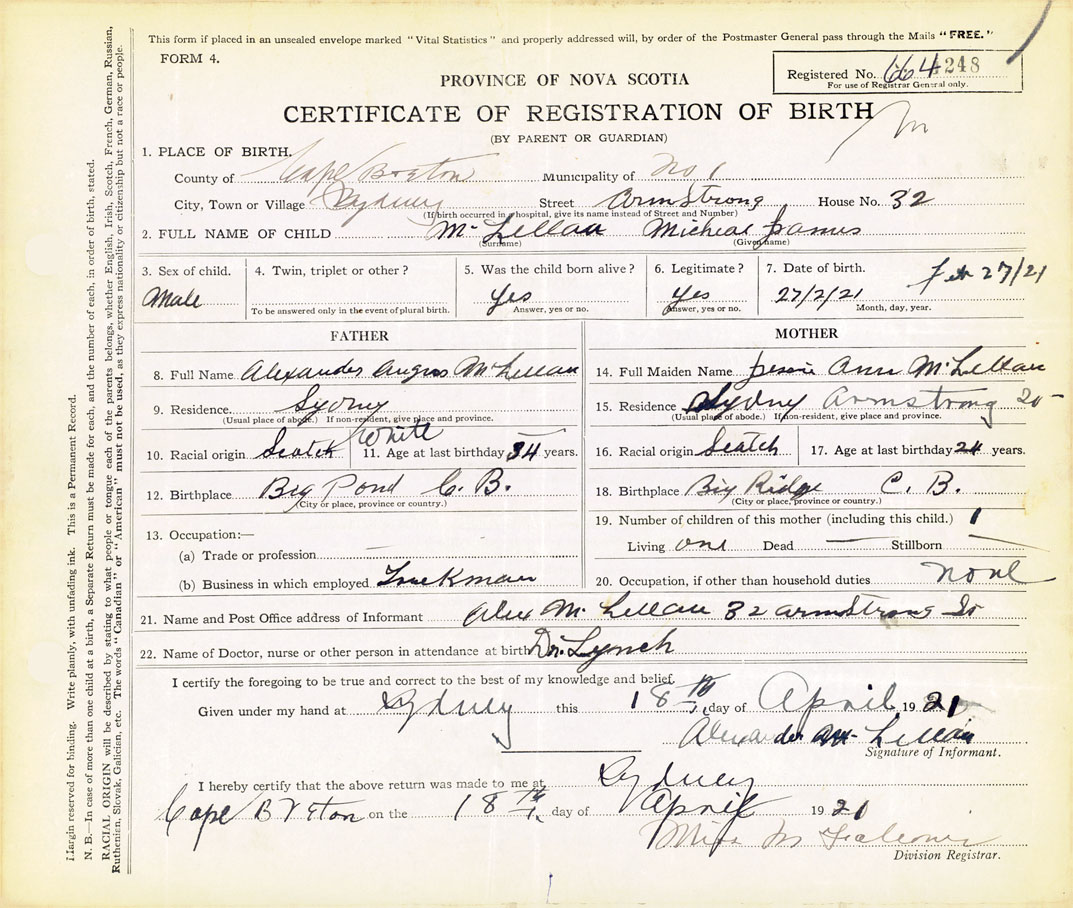 This form if placed in an unsealed envelope marked "Vital Statistics" and properly addressed will, by order of the Postmaster General pass through the Mails "FREE."
FORM 4.
Registered No. 664 248
For use of Registrar General only.
PROVINCE OF NOVA SCOTIA
CERTIFICATE OF REGISTRATION OF BIRTH
(BY PARENT OR GUARDIAN)
m
1. PLACE OF BIRTH.
County of Cape Breton Municipality of No 1
City, Town or Village Sydney Street Armstrong House No. 32
(If birth occurred in a hospital, give its name instead of Street and Number)
2. FULL NAME OF CHILD McLellan Micheal James
(Surname) (Given name)
3. Sex of child. 4. Twin, triplet or other? 5. Was the child born alive? 6. Legitimate? 7. Date of birth. Feb 27/21
Male Yes Yes 27/2/21
To be answered only in the event of plural birth. Answer, yes or no. Answer, yes or no. Month, day, year.
FATHER
8. Full Name Alexander Angus McLellan
9. Residence. Sydny
(Usual place of abode.) If non-resident, give place and province.
10. Racial origin Scotch White 11. Age at last birthday 34 years.
12. Birthplace Big Pond C. B.
(City or place, province or country.)
13. Occupation:—
(a) Trade or profession —
(b) Business in which employed Truckman
MOTHER
14. Full Maiden Name Jessie Ann McLellan
15. Residence Sydny Armstrong
(Usual place of abode.) If non-resident, give place and province.
16. Racial origin Scotch 17. Age at last birthday 24 years.
18. Birthplace Big Ridge C. B.
(City or place, province or country.)
19. Number of children of this mother (including this child.) 1
Living one Dead — Stillborn —
20. Occupation, if other than household duties none
21. Name and Post Office address of Informant Alex McLellan 32 armstrong St
22. Name of Doctor, nurse or other person in attendance at birth Dr. Lynch
I certify the foregoing to be true and correct to the best of my knowledge and belief.
Given under my hand at Sydney this 18th day of April 1921
Alexander McLellan
Signature of Informant.
I hereby certify that the above return was made to me at Sydney
Cape Breton on the 18th day of April 1921
Miss M
Division Registrar.
Margin reserved for binding. Write plainly, with unfading ink. This is a Permanent Record.
N. B.—In case of more than one child at a birth, a Separate Return must be made for each, and the number of each, in order of birth, stated.
RACIAL ORIGIN will be described by stating to what people or tongue each of the parents belongs, whether English, Irish, Scotch, French, German, Russian,
Ruthenian, Slovak, Galician, etc. The words "Canadian" or "American" must not be used, as they express nationality or citizenship but not a race or people.